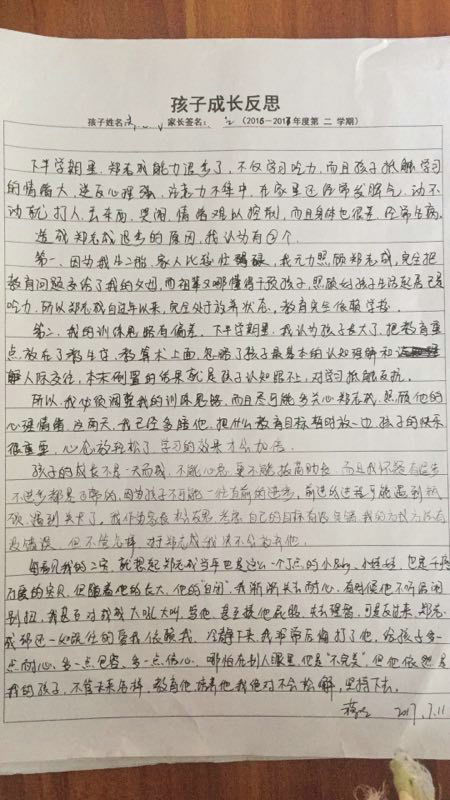 孩子成长反思
孩子姓名: 家长签名: (2016-2017年度第 二 学期)
下半学期里,郑志成能力退步了,不仅学习吃力,而且孩子抵触学习
的情绪大,逆反心理强,注意力不集中,在家里还经常发脾气,动不
动就打人,丢东西,哭闹,情绪难以控制,而且身体也很差,经常生病。
造成郑志成退步的原因,我认为有2个。
第一,因为我生二胎,家人比较忙碌,我无力照顾郑志成,完全把
教育问题交给了我的父母,而祖辈又哪懂得干预孩子,照顾好孩子生活起居已是
吃力,所以郑志成自过年以来,完全处于放养状态,教育完全依赖学校。
第二,我的训练思路有偏差,下半学期里,我认为孩子长大了,把教育重
点放在了教生字,教算术上面,忽略了孩子最基本的认知理解和
人际交往,本末倒置的结果就是孩子认知跟不上,对学习抵触反抗。
所以,我必须调整我的训练思路,而且尽可能多关心郑志成,照顾他的
心理情绪,这两天,我已经多陪他,把什么教育目标暂时放一边,孩子的快乐
很重要,心态放轻松了,学习的效果才会加倍。
孩子的成长不是一天而成,不能心急,更不能拔苗助长,而且
不进步都是正常的,因为孩子不可能一往直前的进步,前进的过程可能遇到瓶
颈,遇到失败了,我作为家长 自己的目标有没有错,我的方式方法有
没错误,但不管怎样,对郑志成我决不会放弃他。
每看见我的二宝,就想起郑志成当年也是这么一个小小的 ,小娃娃,也是千疼
万爱的宝贝,但随着他的长大,他的“自闭”,我渐渐失去耐心,有时候他不听话闹
别扭,我甚至对我成大吼大叫,骂他,甚至揍他屁股,失去理智,可是反过来,郑志
成却还一如既往的爱我,依赖我,冷静下来,我常常后悔打了他,给孩子多一
点耐心,多一点包容,多一点信心,哪怕在别人眼里,他是“不完美”,但他依然是
我的孩子,不管未来怎样,教育他,培养他,我绝对不会松懈,坚持下去。
2017.7.11